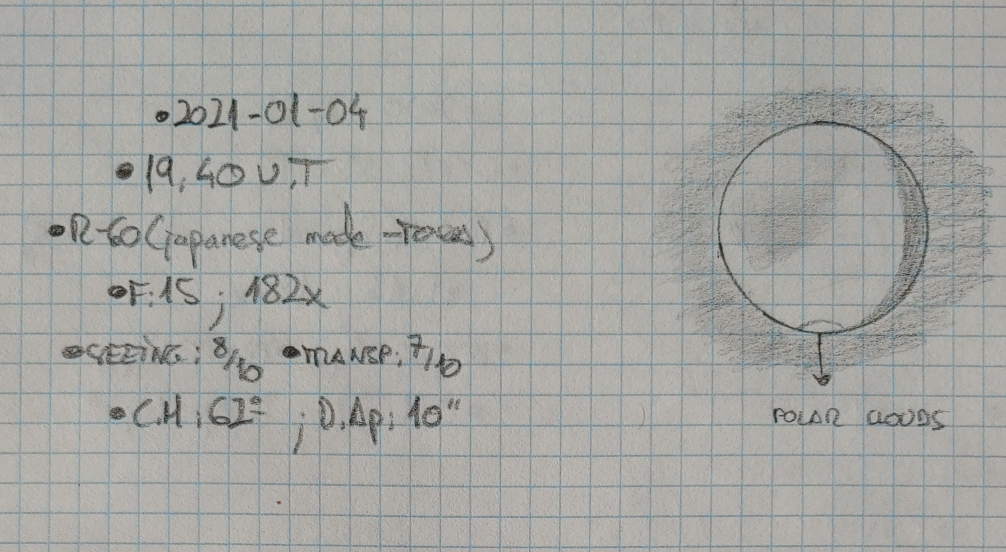 •2021-01-04
•19,40 U.T
•R-60 (japanese made - )
•F:15 ; 182x
•SEEING: 8/10 •TRANSP: 7/10
•C.M: 62º ; D.Ap: 10"
POLAR CLOUDS